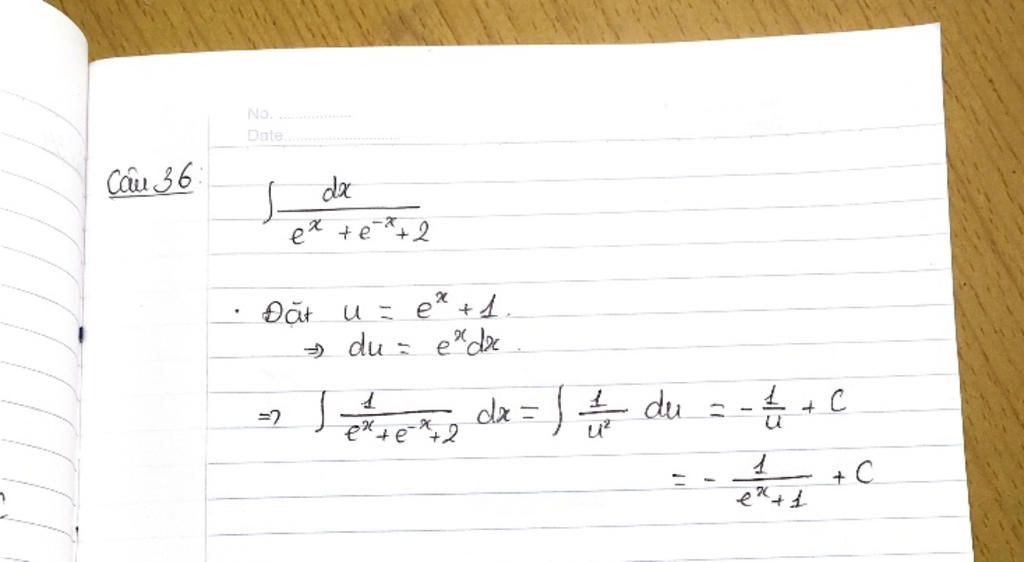 No. ..................
Date..............................
Câu 36:
∫ dx / (e^x + e^-x + 2)
· Đặt u = e^x + 1.
⇒ du = e^x dx.
⇒ ∫ 1 / (e^x + e^-x + 2) dx = ∫ 1 / u² du = - 1 / u + C
= - 1 / (e^x + 1) + C